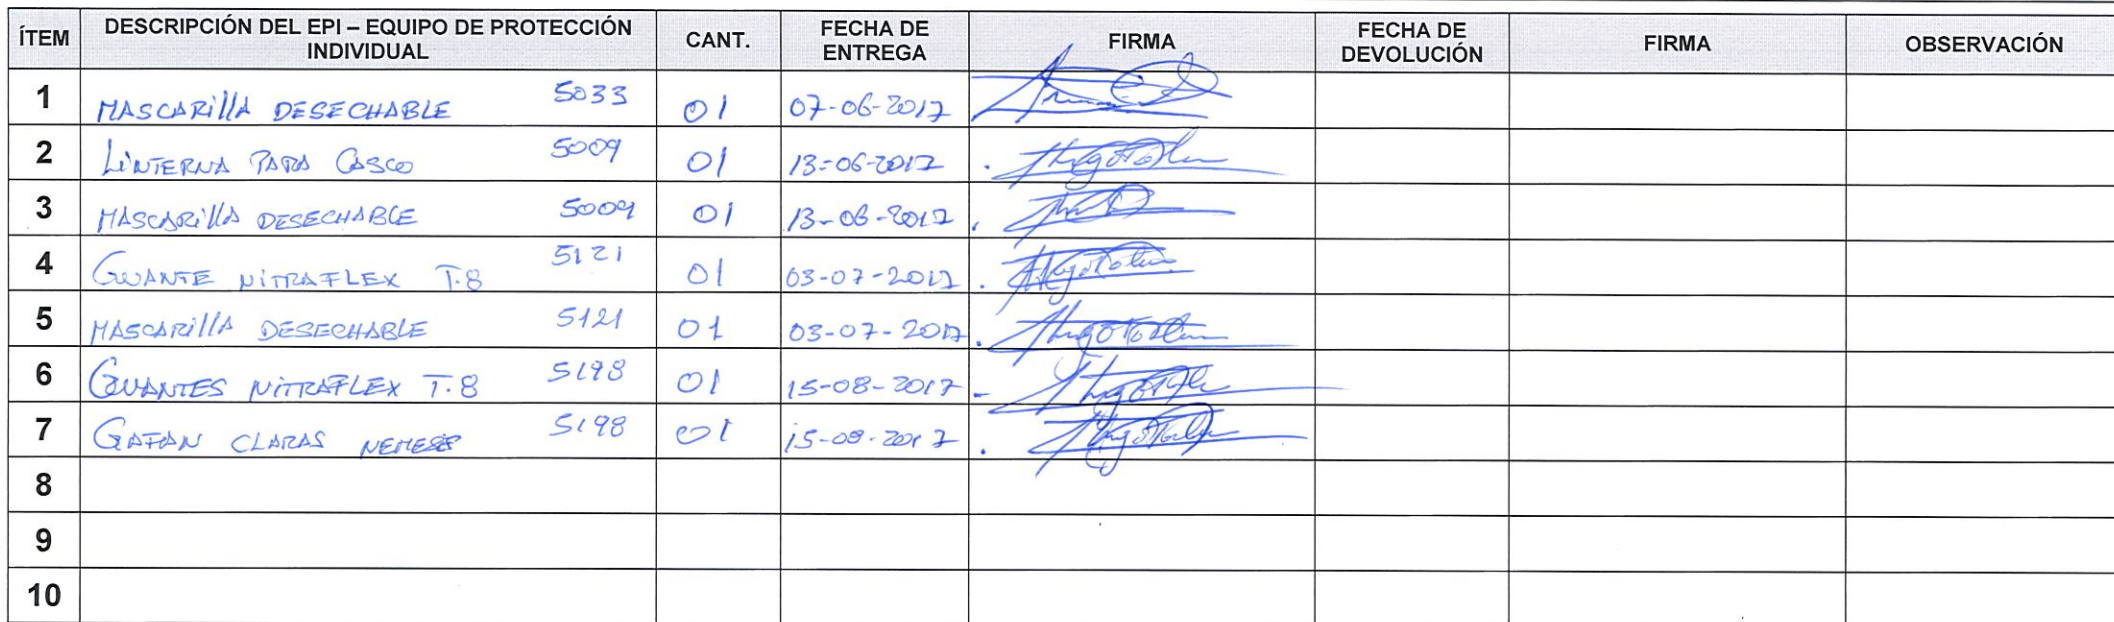 ÍTEM DESCRIPCIÓN DEL EPI – EQUIPO DE PROTECCIÓN INDIVIDUAL CANT. FECHA DE ENTREGA FIRMA FECHA DE DEVOLUCIÓN FIRMA OBSERVACIÓN
1 MASCARILLA DESECHABLE 5033 01 07-06-2017
2 LINTERNA PARA CASCO 5009 01 13-06-2017
3 MASCARILLA DESECHABLE 5009 01 13-06-2017
4 GUANTE NITRAFLEX T.8 5121 01 03-07-2017
5 MASCARILLA DESECHABLE 5121 01 03-07-2017
6 GUANTES NITRAFLEX T.8 5198 01 15-08-2017
7 CLARAS 5198 01 15-08-2017
8
9
10